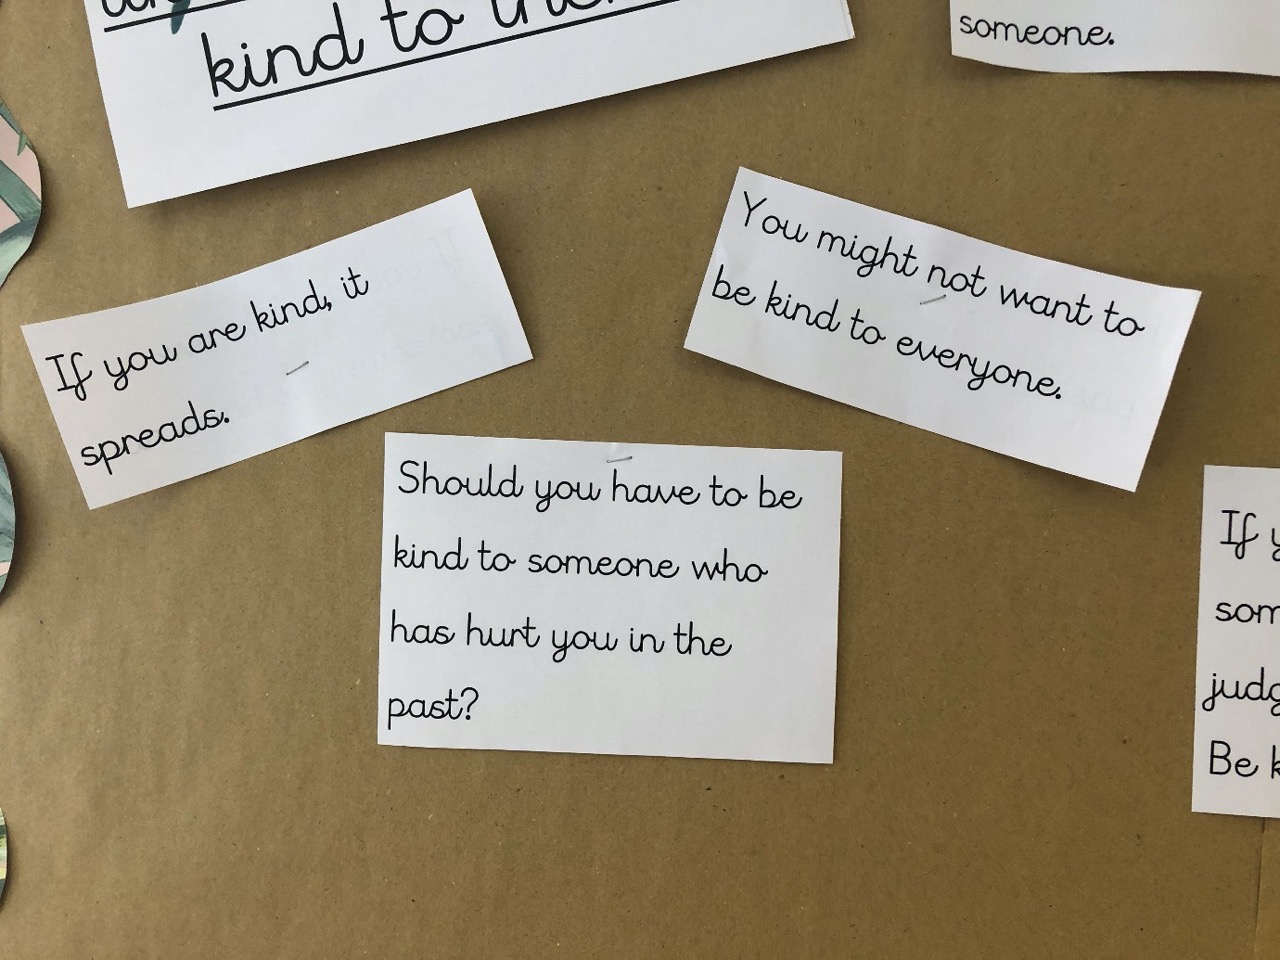 kind to
someone.
If you are kind, it
spreads.
You might not want to
be kind to everyone.
Should you have to be
kind to someone who
has hurt you in the
past?
If
Be